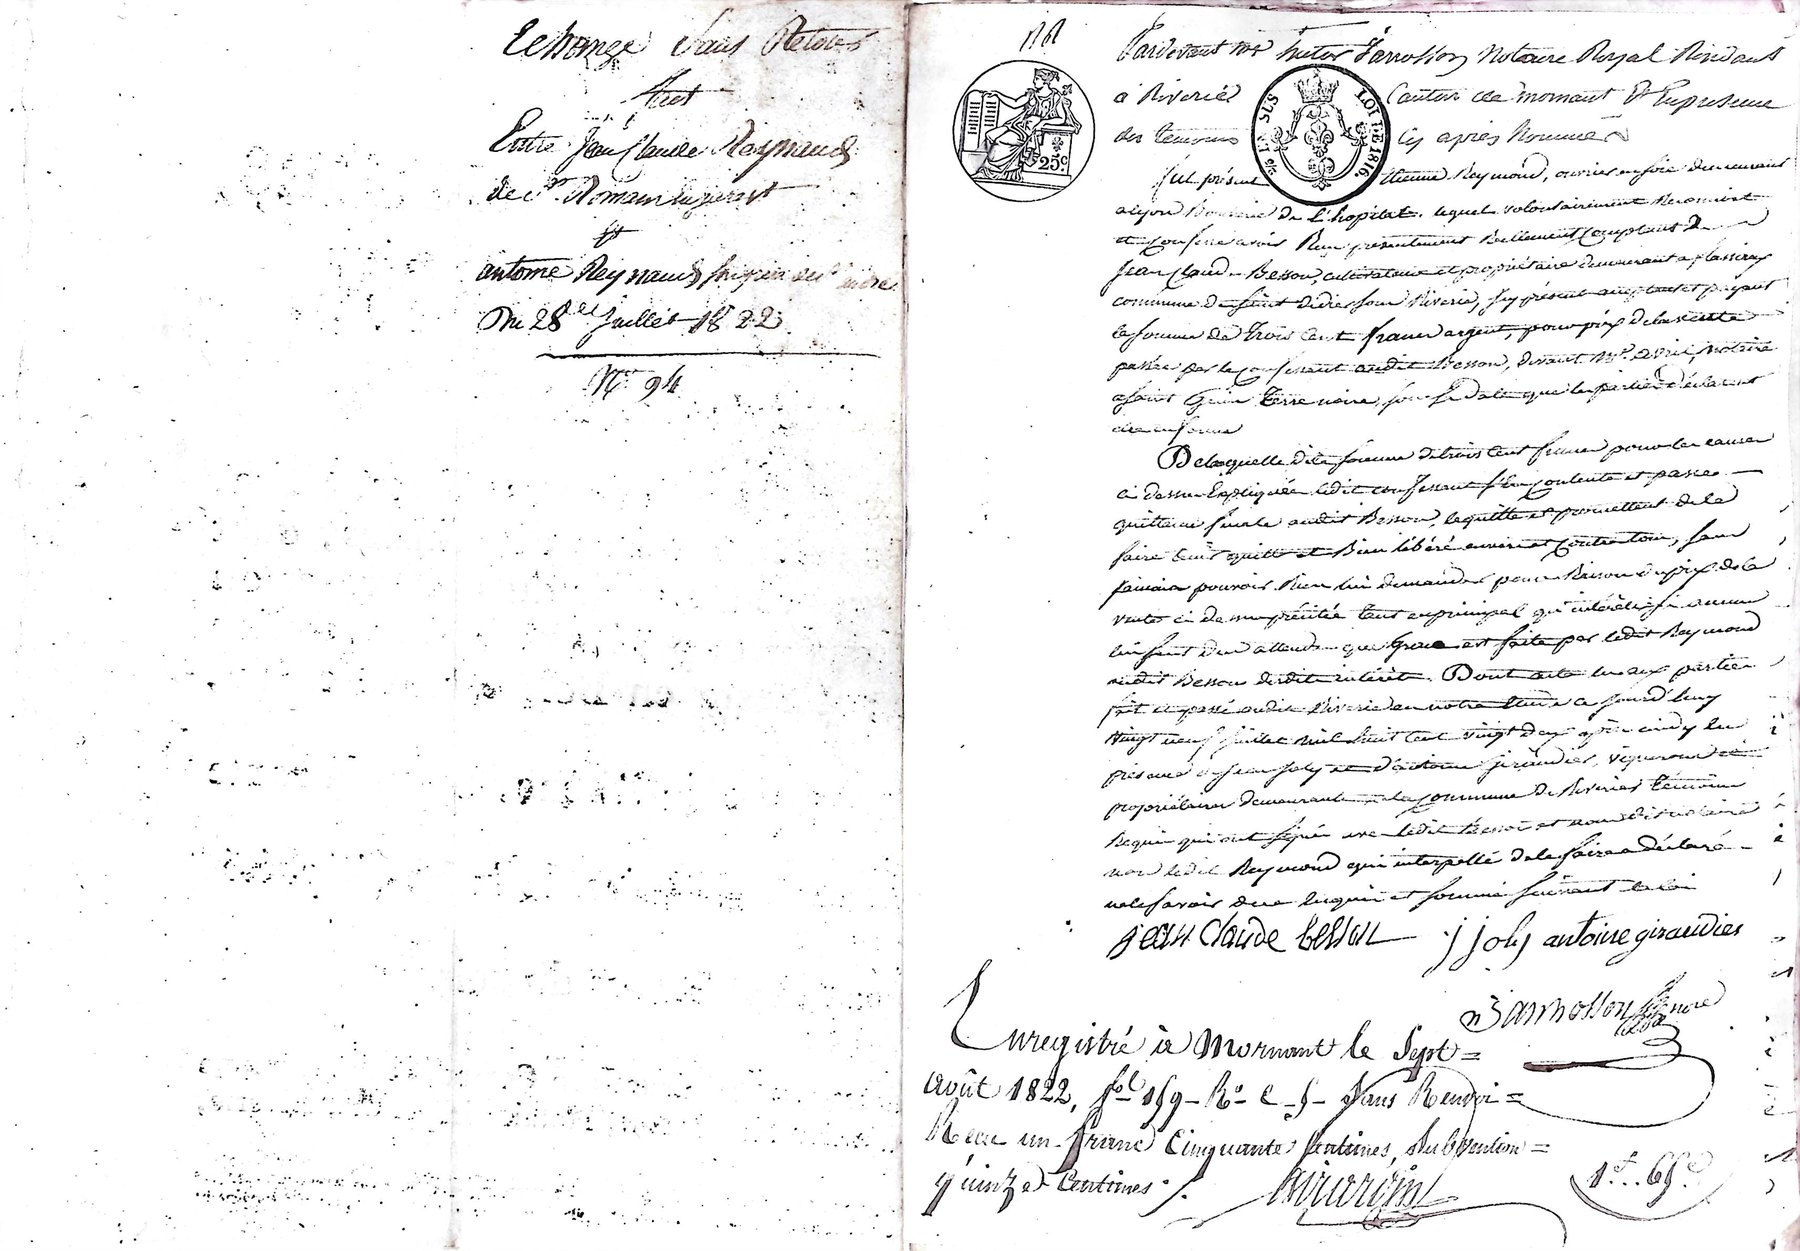 Echange Sans Retour
fait
Entre Jean Claude Reynaud
de St. Romain en jarest
Et
antoine Reynaud
Du 28 Juillet 1822
No. 94
Pardevant me Victor Jarrosson Notaire Royal Résidant
à Riverie Canton de mornant En présence
des témoins cy après Nommés
25c.
LOI DE 1816.
fut présent Etienne Reymond, ouvrier en soie demeurant
a Lyon de L'hopital. lequel volontairement Reconnait
et Confesse avoir Reçu présentement Réellement Comptant de
Jean Claude Besson, cultivateur et propriétaire demeurant a plassieux
commune de saint didier sous Riverie, ici présent acceptant et payant
la somme de Trois Cent francs argent, pour prix de la vente
passée par le Confessant audit Besson, devant Me. avril, Notaire
a saint Genis Terre noire, sous Sa date que les parties déclarent
De laquelle dite somme de trois Cent francs pour les causes
ci dessus Expliquées ledit confessant s'en Contente et passe
quittance finale audit Besson, le quitte et promettent de le
faire tenir quitte et Bien libéré envers et Contre tous, sans
jamais pouvoir Rien lui demander pour Raison du prix de la
vente ci dessus précitée tant en principal qu'intérêts si aucuns
lui sont dus attendu que Grace est faite par ledit Reymond
audit Besson dudit intérêt. Dont acte lu aux parties
fait et passé audit Riverie en notre étude ce jourd'huy
vingt neuf juillet mil huit Cent vingt deux après midy en
présence de jean joly et d'antoine giraudier, vignerons et
propriétaires demeurants en la Commune de Riverie témoins
Requis qui ont Signés avec ledit Besson et nous dit notaire
non ledit Reymond qui interpellé de le faire a déclaré
ne le savoir de ce Enquis et sommé suivant la loi
jean claude besson j joly antoine giraudier
Jarrosson notaire
Enregistré à Mornant le Sept
Août 1822, fol 159 Ro C 5 Sans Renvoi
Reçu un franc Cinquante Centimes, Subvention
quinze Centimes.
1f..65c